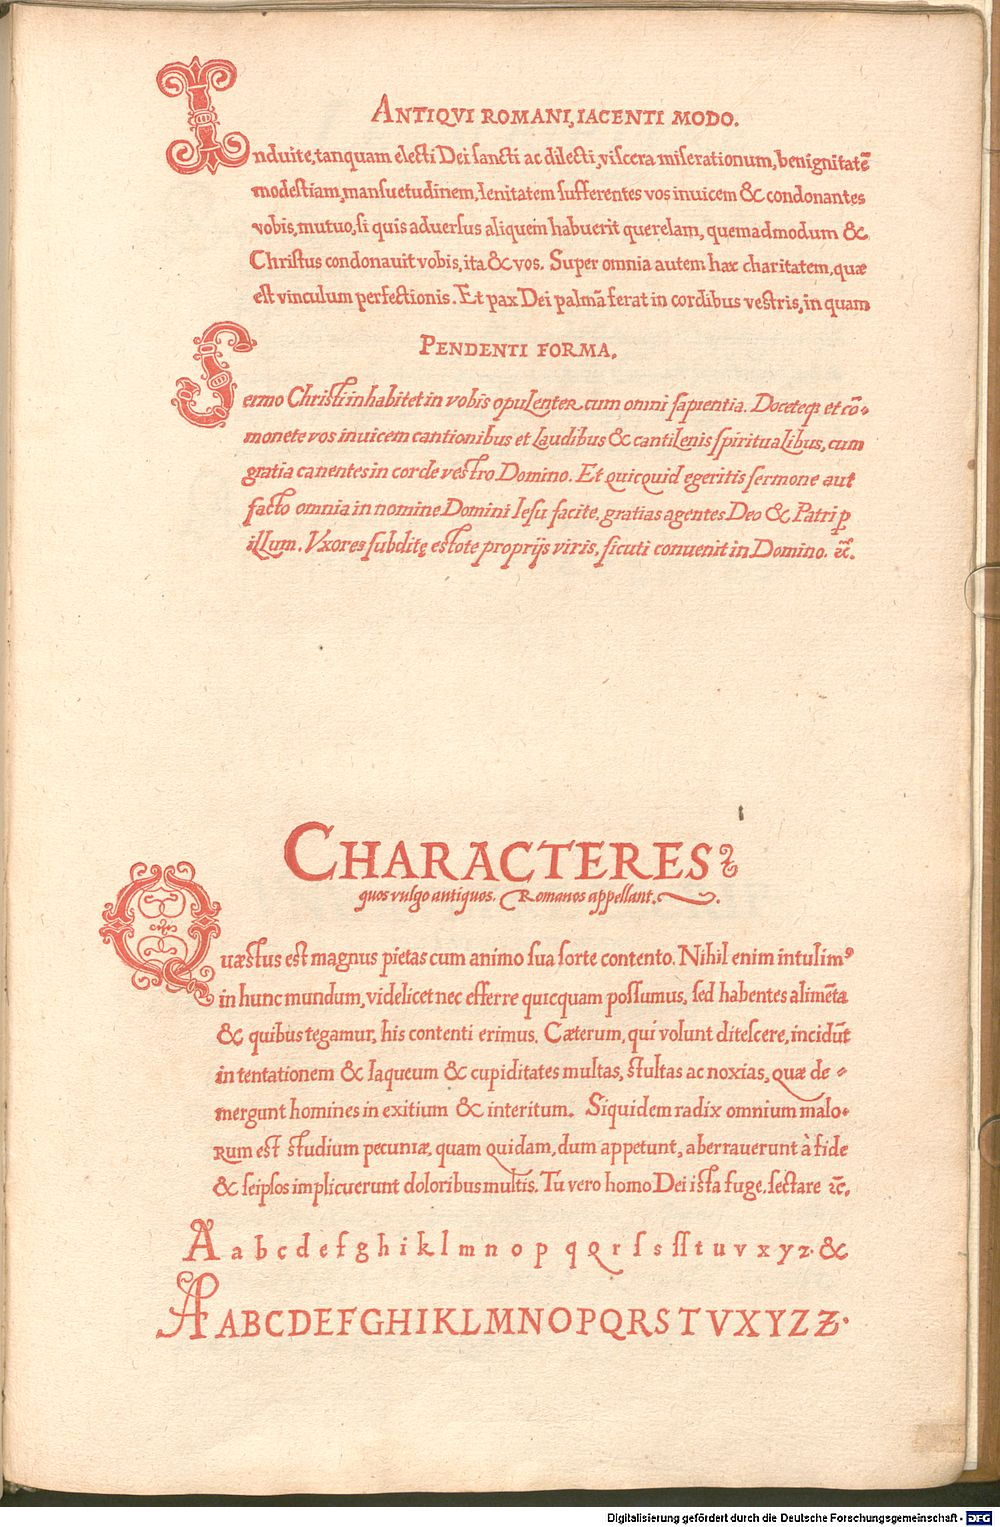 ANTIQVI ROMANI, IACENTI MODO.
Induite, tanquam electi Dei ſancti ac dilecti, viſcera miſerationum, benignitatē
modeſtiam, manſuetudinem, lenitatem ſufferentes vos inuicem & condonantes
vobis, mutuo, ſi quis aduerſus aliquem habuerit querelam, quemadmodum &
Chriſtus condonauit vobis, ita & vos. Super omnia autem hæc charitatem, quæ
eſt vinculum perfectionis. Et pax Dei palmā ferat in cordibus veſtris, in quam
PENDENTI FORMA.
Sermo Chriſti inhabitet in vobis opulenter cum omni ſapientia. Doceteqȝ et cō-
monete vos inuicem cantionibus et laudibus & cantilenis ſpiritualibus, cum
gratia canentes in corde veſtro Domino. Et quicquid egeritis ſermone aut
facto omnia in nomine Domini Ieſu facite, gratias agentes Deo & Patri ꝑ
illum. Vxores ſubditę eſtote proprijs viris, ſicuti conuenit in Domino. ⁊c̃.
CHARACTERES
quos vulgo antiquos. Romanos appellant.
Quæſtus eſt magnus pietas cum animo ſua ſorte contento. Nihil enim intulimꝰ
in hunc mundum, videlicet nec efferre quicquam poſſumus, ſed habentes alimēta
& quibus tegamur, his contenti erimus. Cæterum, qui volunt diteſcere, incidūt
in tentationem & laqueum & cupiditates multas, ſtultas ac noxias, quæ de-
mergunt homines in exitium & interitum. Siquidem radix omnium malo-
rum eſt ſtudium pecuniæ, quam quidam, dum appetunt, aberrauerunt à fide
& ſeipſos implicuerunt doloribus multis. Tu vero homo Dei iſta fuge, ſectare ⁊c̃.
A a b c d e f g h i k l m n o p q Q r ſ s ſſ t u v x y z · &
A A B C D E F G H I K L M N O P Q R S T V X Y Z Z ·
Digitalisierung gefördert durch die Deutsche Forschungsgemeinschaft - DFG